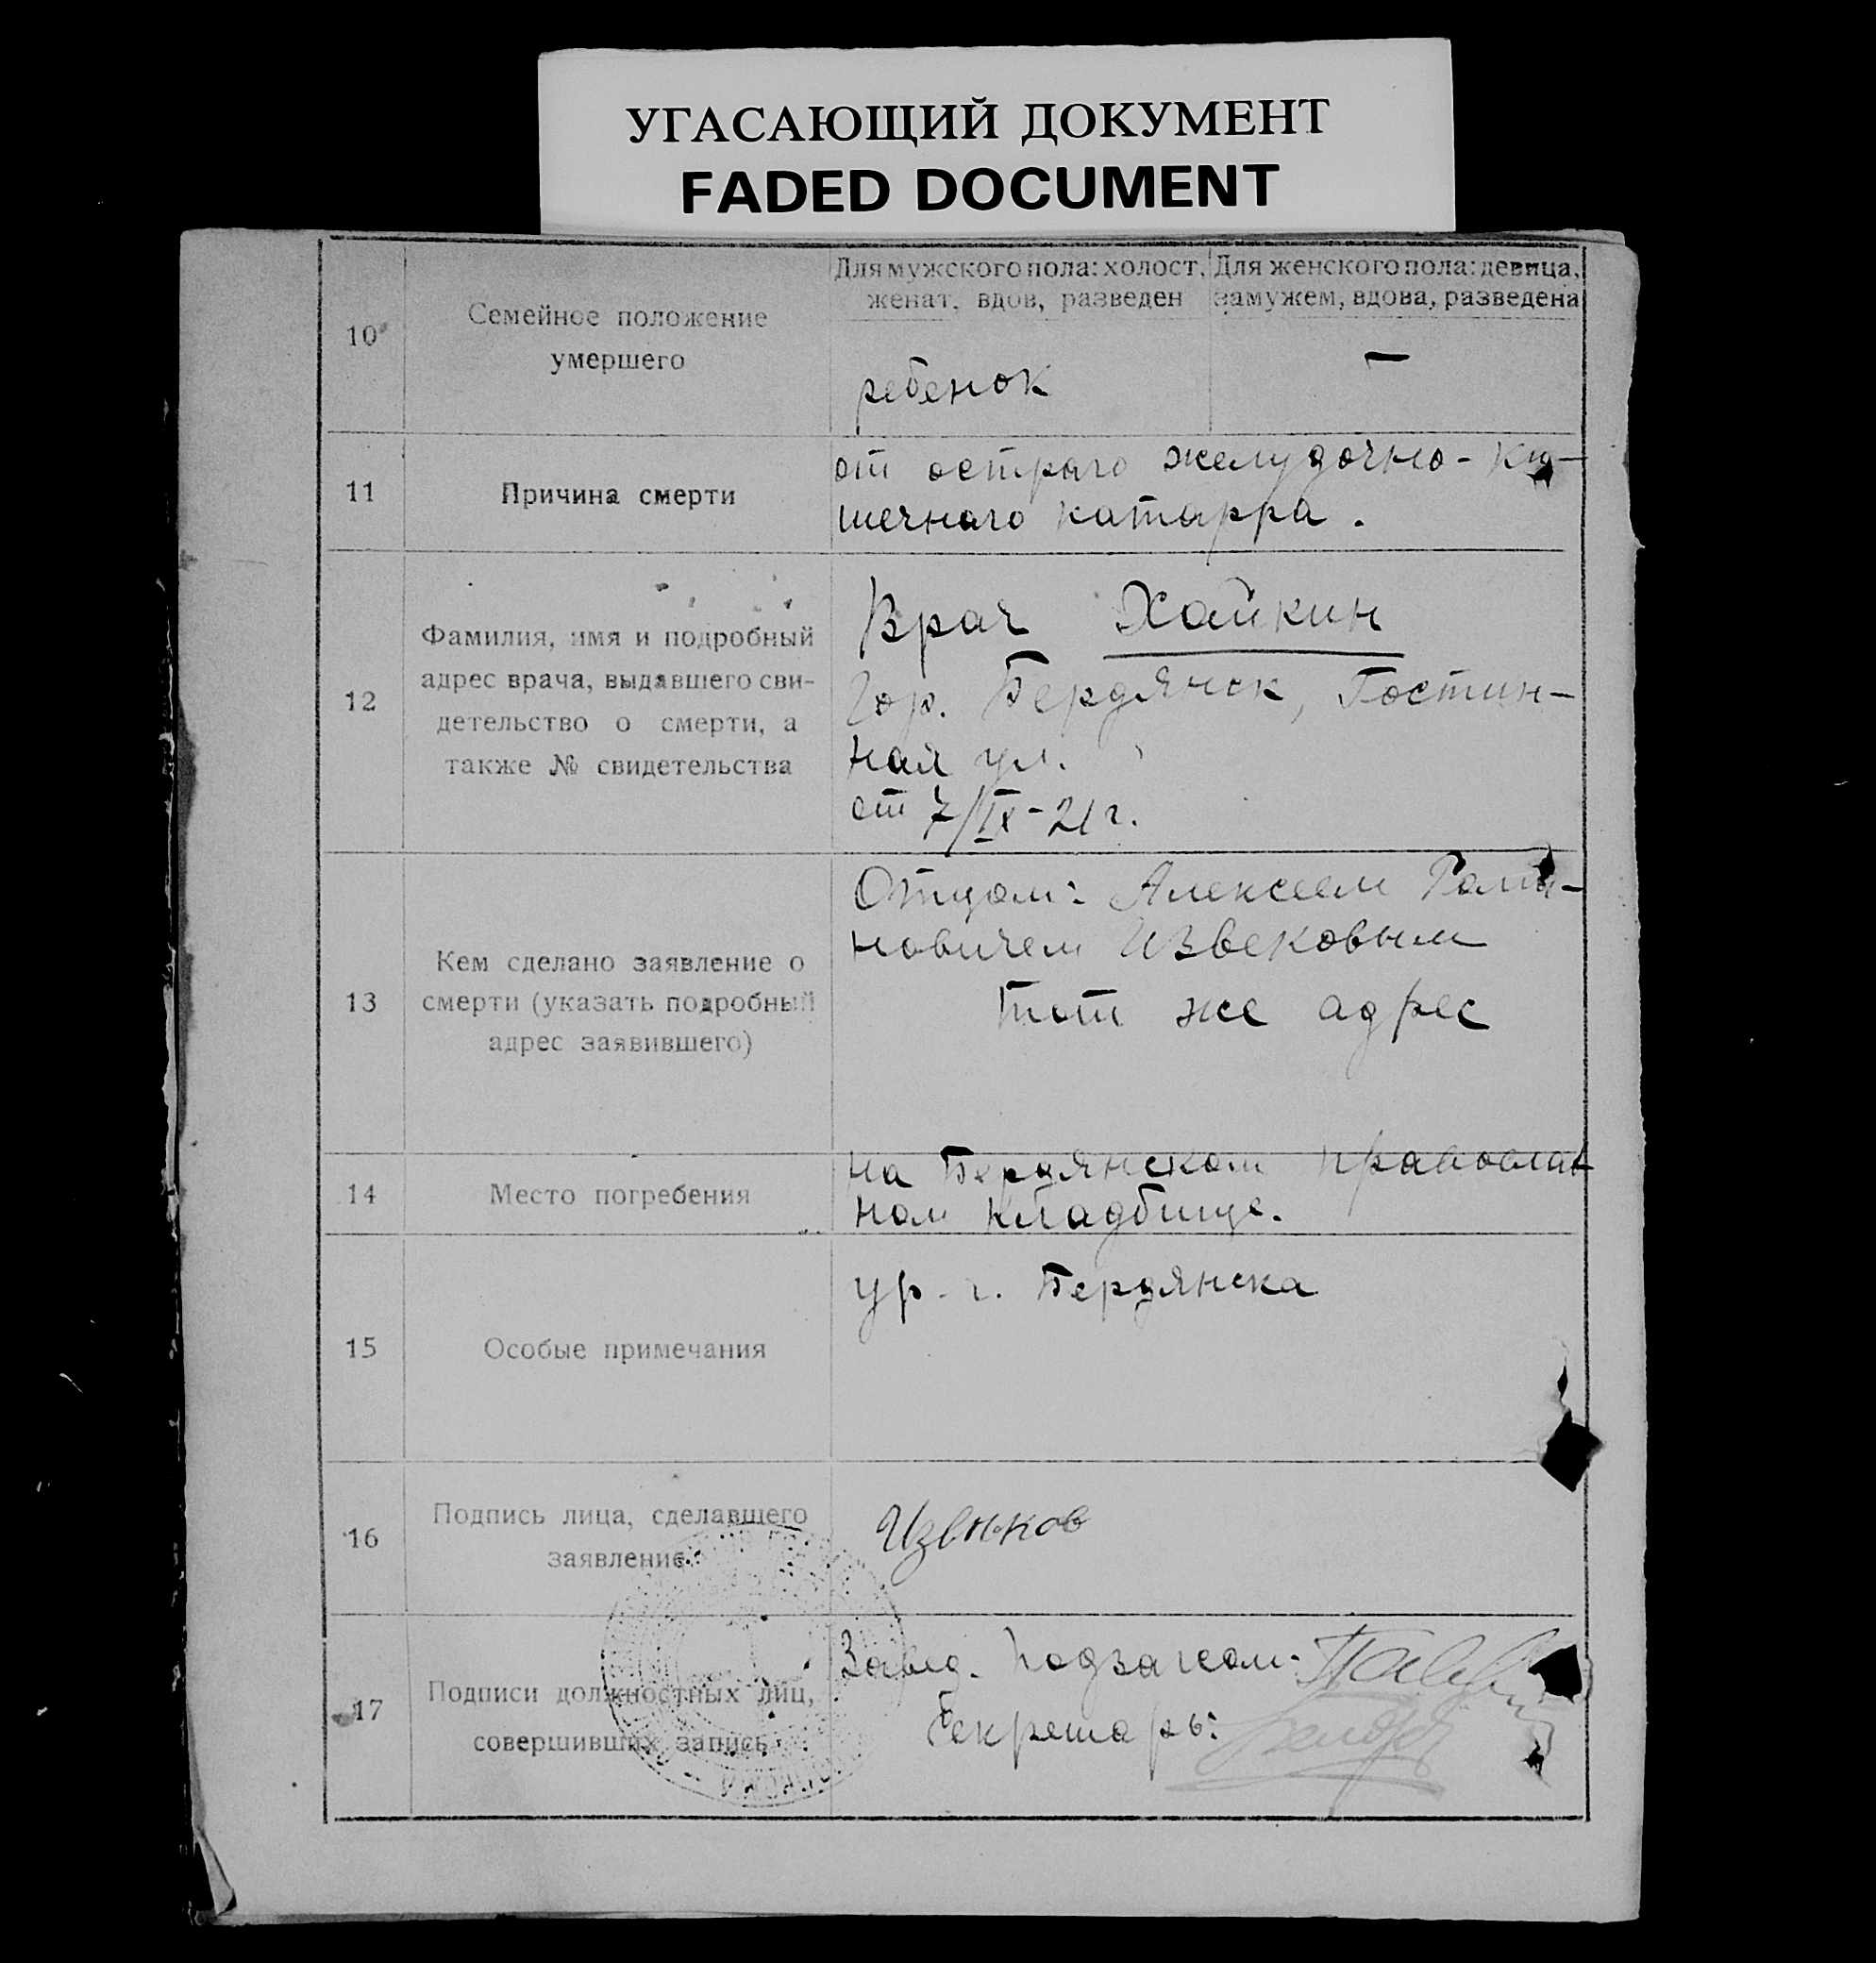 УГАСАЮЩИЙ ДОКУМЕНТ
FADED DOCUMENT
10
Семейное положение
умершего
Для мужского пола: холост,
женат, вдов, разведен
Для женского пола: девица,
замужем, вдова, разведена
ребенок
—
11
Причина смерти
от острого желудочно-ки-
шечного катарра.
12
Фамилия, имя и подробный
адрес врача, выдавшего сви-
детельство о смерти, а
также № свидетельства
Врач Хайкин
Гор. Бердянск, Гостин-
ная ул.
от 7/IX-21 г.
13
Кем сделано заявление о
смерти (указать подробный
адрес заявившего)
Отцом: Алексеем Рома-
новичем Извековым
Тот же адрес
14
Место погребения
на Бердянском православ
ном кладбище.
15
Особые примечания
ур. г. Бердянска
16
Подпись лица, сделавшего
заявление
Извеков
17
Подписи должностных лиц,
совершивших запись
Завед. Подзагсом:
Секретарь: